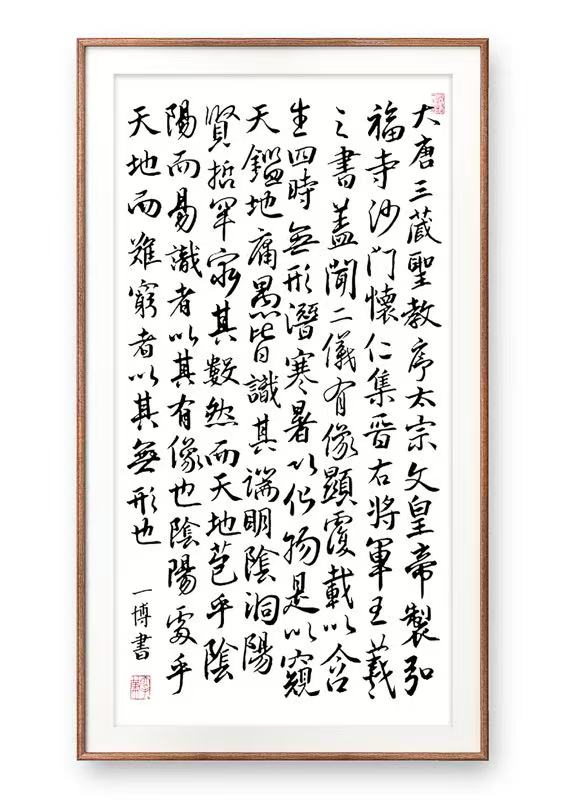 大唐三藏聖教序太宗文皇帝製弘
福寺沙门懷仁集晉右將軍王羲
之書蓋聞二儀有像顯覆載以含
生四時無形潛寒暑以化物是以窺
天鑑地庸愚皆識其端明陰洞陽
賢哲罕窮其數然而天地苞乎陰
陽而易識者以其有像也陰陽處乎
天地而難窮者以其無形也
一博書